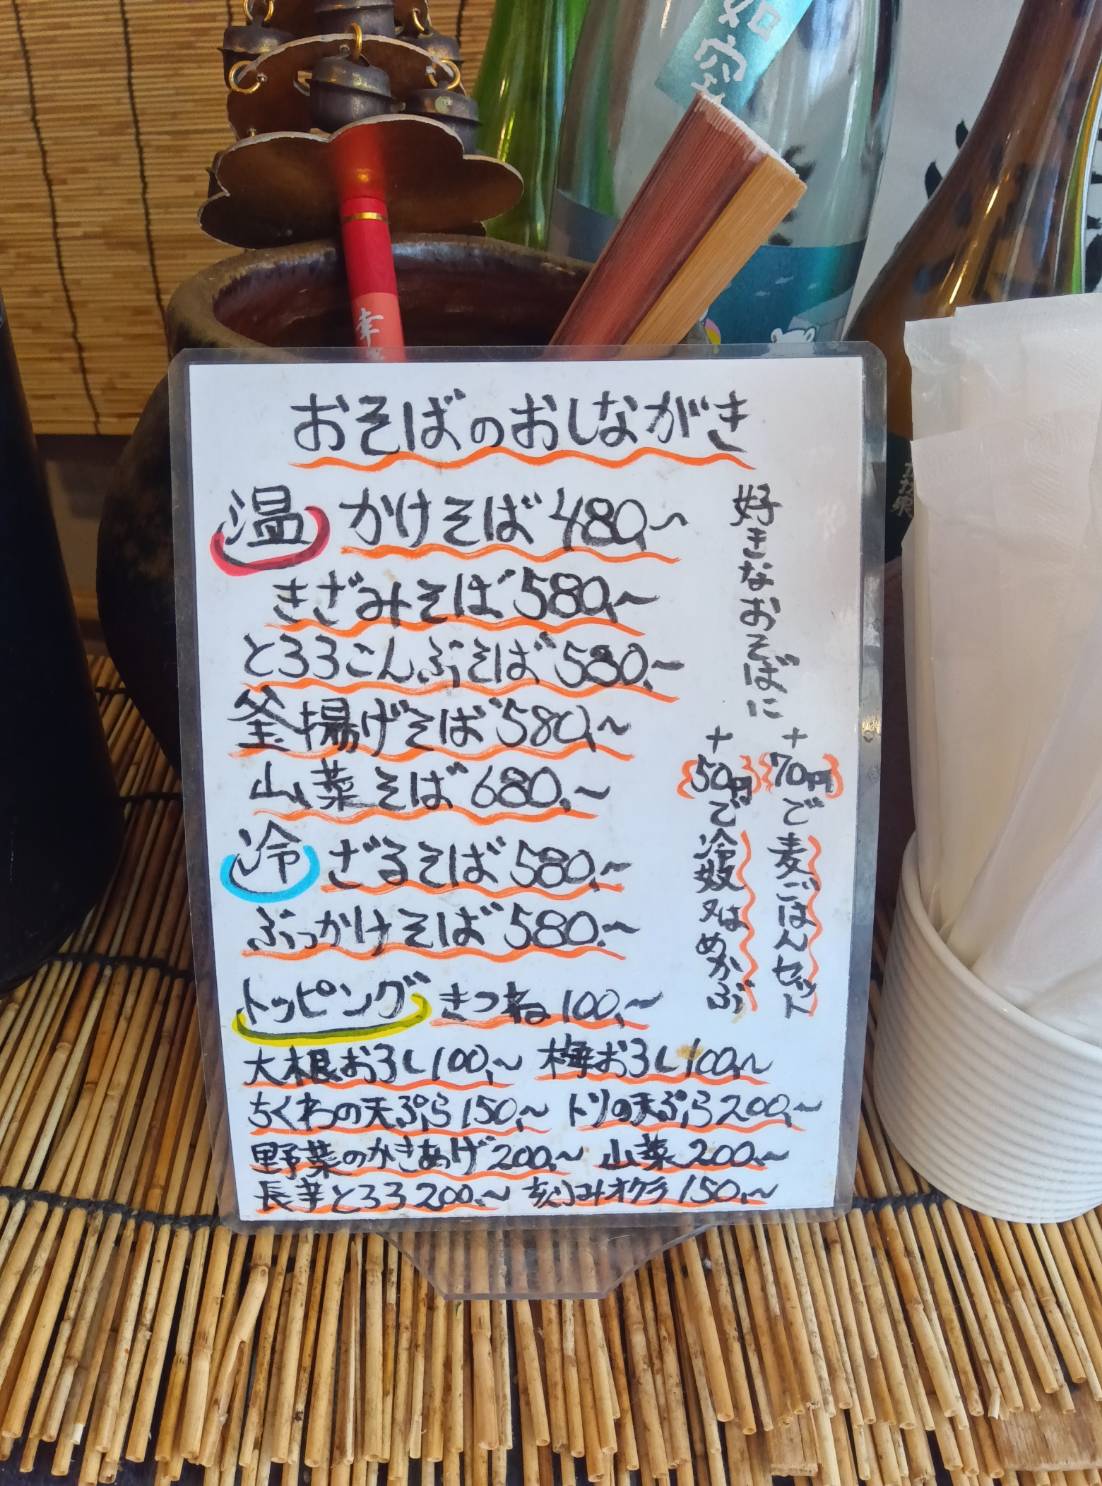 如空
幸
おそばのおしながき
温 かけそば 480.~
きざみそば 580.~
とろろこんぶそば 580.~
釜揚げそば 580.~
山菜そば 680.~
冷 ざるそば 580.~
ぶっかけそば 580.~
トッピング きつね 100.~
大根おろし 100.~ 梅おろし 100.~
ちくわの天ぷら 150.~ トリの天ぷら 200.~
野菜のかきあげ 200.~ 山菜 200.~
長芋とろろ 200.~ 刻みオクラ 150.~
好きなおそばに
+70円で麦ごはんセット
+50円で冷奴又はめかぶ